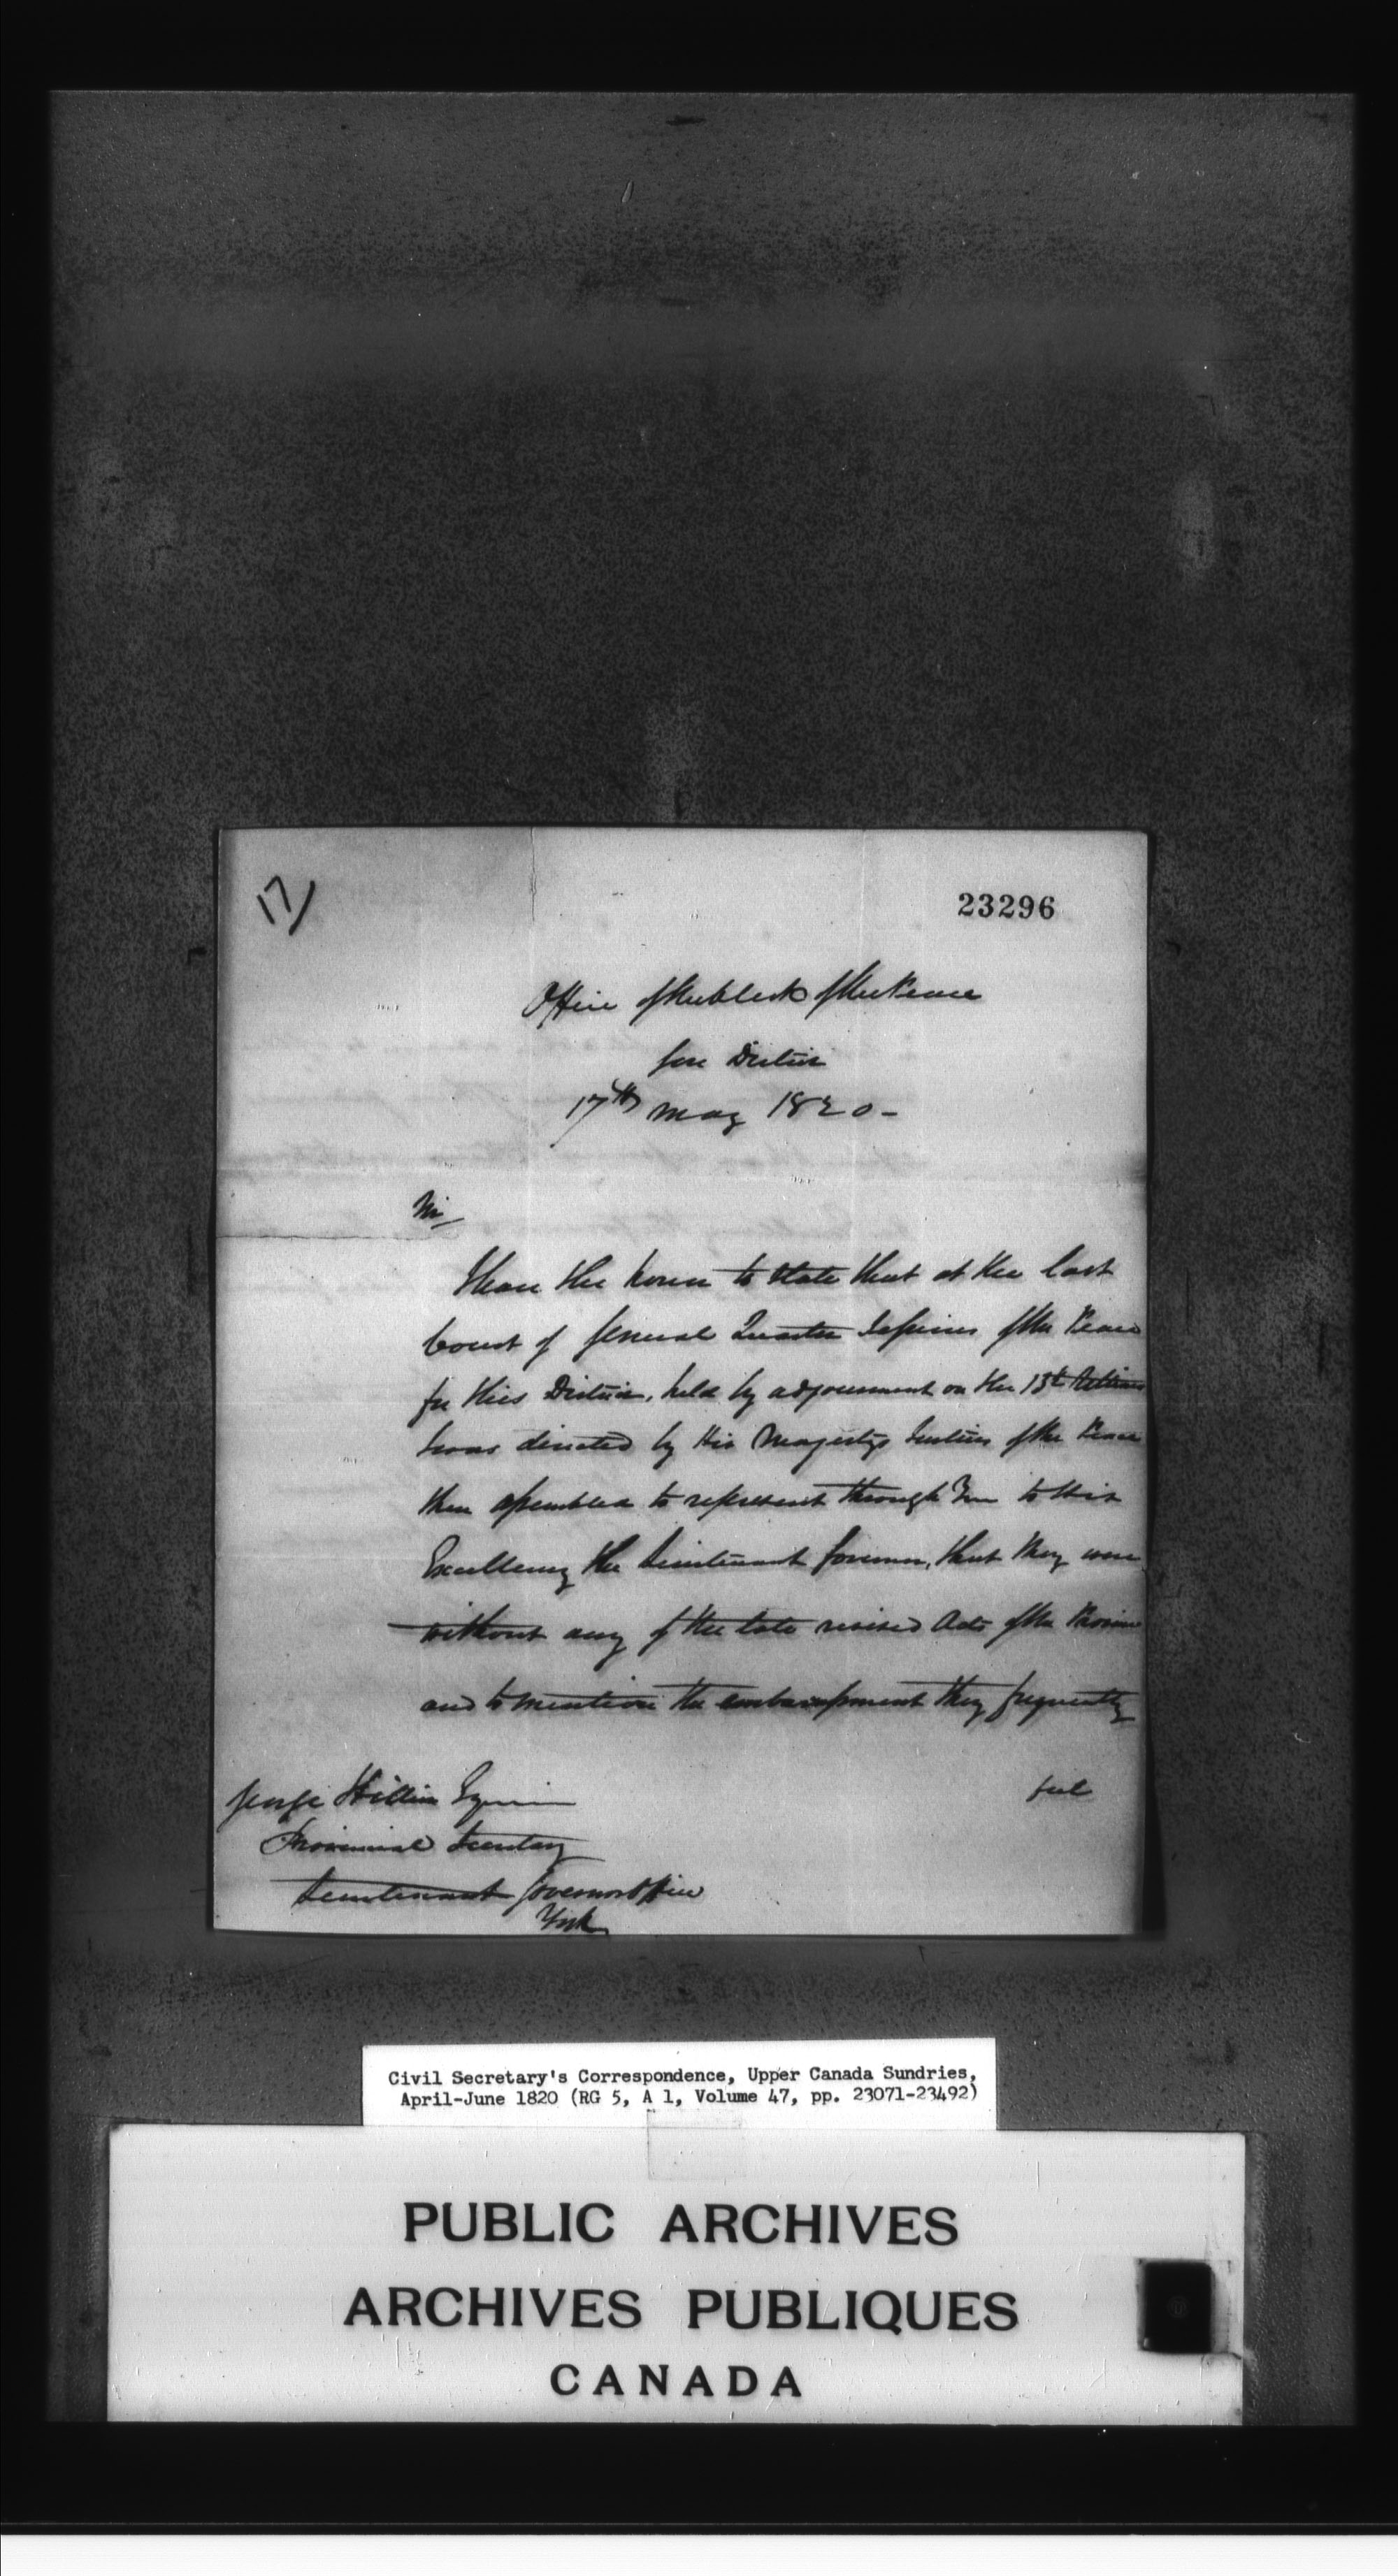 17/
23296
Office of the Clerk of the Peace
Gore District
17th May 1820-
Sir
I have the honor to state that at the last
Court of General Quarter Sessions of the Peace
for this District, held by adjournment on the 13th
I was directed by His Majestys Justices of the Peace
then assembled to represent through You to His
Excellency the Lieutenant Governor, that they were
without any of the late revised Acts of the Province
and to mention the embarrassment they frequently
feel
George Hillier Esquire
Provincial Secretary
Lieutenant Governors Office
York
Civil Secretary's Correspondence, Upper Canada Sundries,
April-June 1820 (RG 5, A 1, Volume 47, pp. 23071-23492)
PUBLIC ARCHIVES
ARCHIVES PUBLIQUES
CANADA